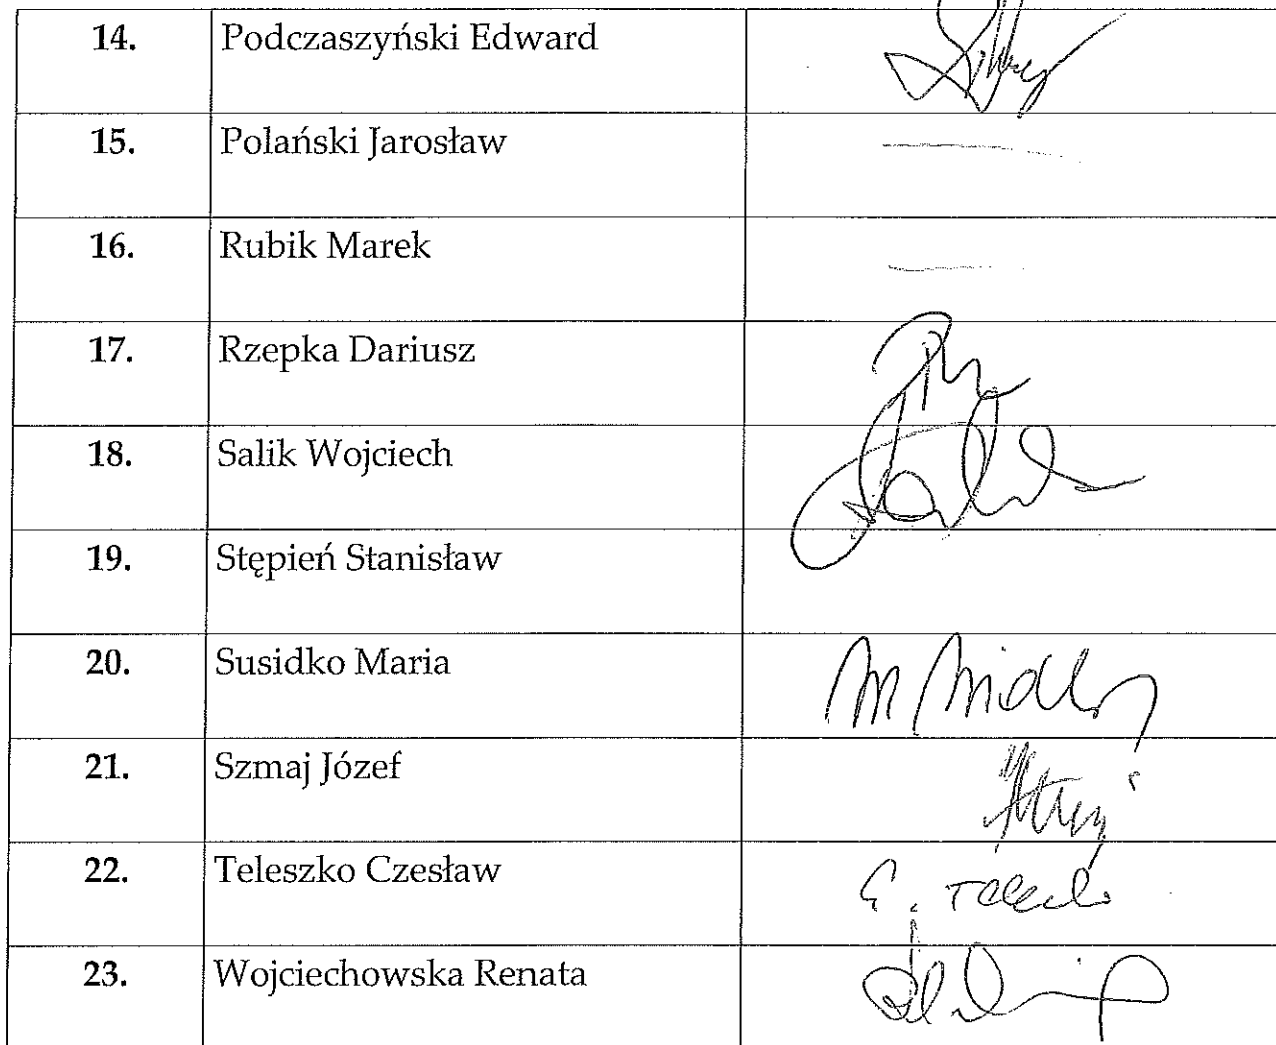 14. Podczaszyński Edward
15. Polański Jarosław
16. Rubik Marek
17. Rzepka Dariusz
18. Salik Wojciech
19. Stępień Stanisław
20. Susidko Maria
21. Szmaj Józef
22. Teleszko Czesław
23. Wojciechowska Renata